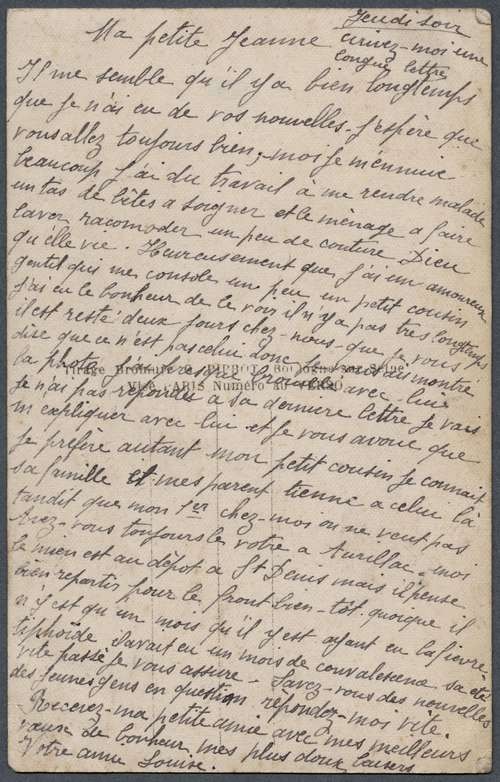 Jeudi soir
Ma petite Jeanne
écrivez-moi une
longue lettre
Il me semble qu'il y a bien longtemps
que je n'ai eu de vos nouvelles - j'espère que
vous allez toujours bien, - moi je m'ennuie
beaucoup j'ai du travail à me rendre malade
un tas de bêtes a soigner et le ménage a faire
laver racomoder un peu de couture Dieu
qu'elle vie. Heureusement que j'ai un amoureux
gentil qui me console un peu un petit cousin
j'ai eu le bonheur de le voir il n'y a pas très longtemps
il est resté deux jours chez-nous - que je vous
dire que ce n'est pas celui donc je vous avais montré
la photo avec lui
je n'ai pas repondre a sa dernière lettre je vais
m'expliquer avec lui et je vous avoue que
je préfère autant mon petit cousin je connait
sa famille et mes parent tienne a celui là
tandit que mon 1er chez-moi on ne veut pas
Avez-vous toujours le votre a Aurillac - moi
le mien est au dépot a St Denis mais il pense
bien repartir pour le front bien-tôt. quoique il
n'y est qu'un mois qu'il y est ayant eu la fièvre
tiphoïde il avait eu un mois de convalescence sa été
vite passé je vous assure - Savez-vous des nouvelles
des jeunes gens en question répondez-moi vite.
Recevez-ma petite amie avec mes meilleurs
vœux de bonheur mes plus doux baisers
Votre amie Louise.